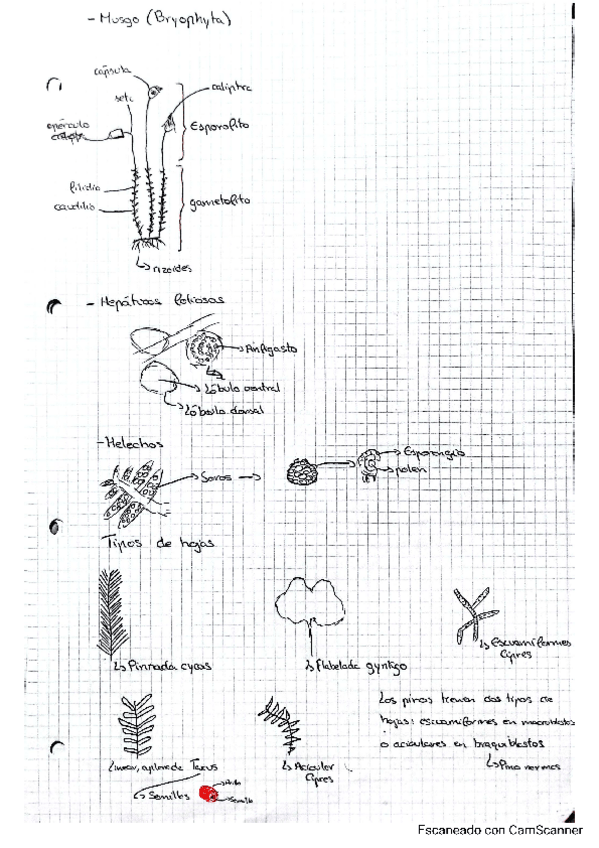 - Musgo (Bryophyta)
cápsula
seta
caliptra
opérculo
Esporofito
filidio
caulidio
gametofito
rizoides
- Hepáticas foliosas
Anfigasto
Lóbulo ventral
Lóbulo dorsal
- Helechos
Soros
Esporangio
polen
Tipos de hojas
Pinnada cycas
Flabelada gynkgo
Escuamiformes
Cipres
Los pinos tienen dos tipos de
hojas: escuamiformes en macroblastos
o aciculares en braquiblastos
Pino
Linear, aplanada Taxus
Acicular
Cipres
Semillas
Arilo
Semilla
Escaneado con CamScanner